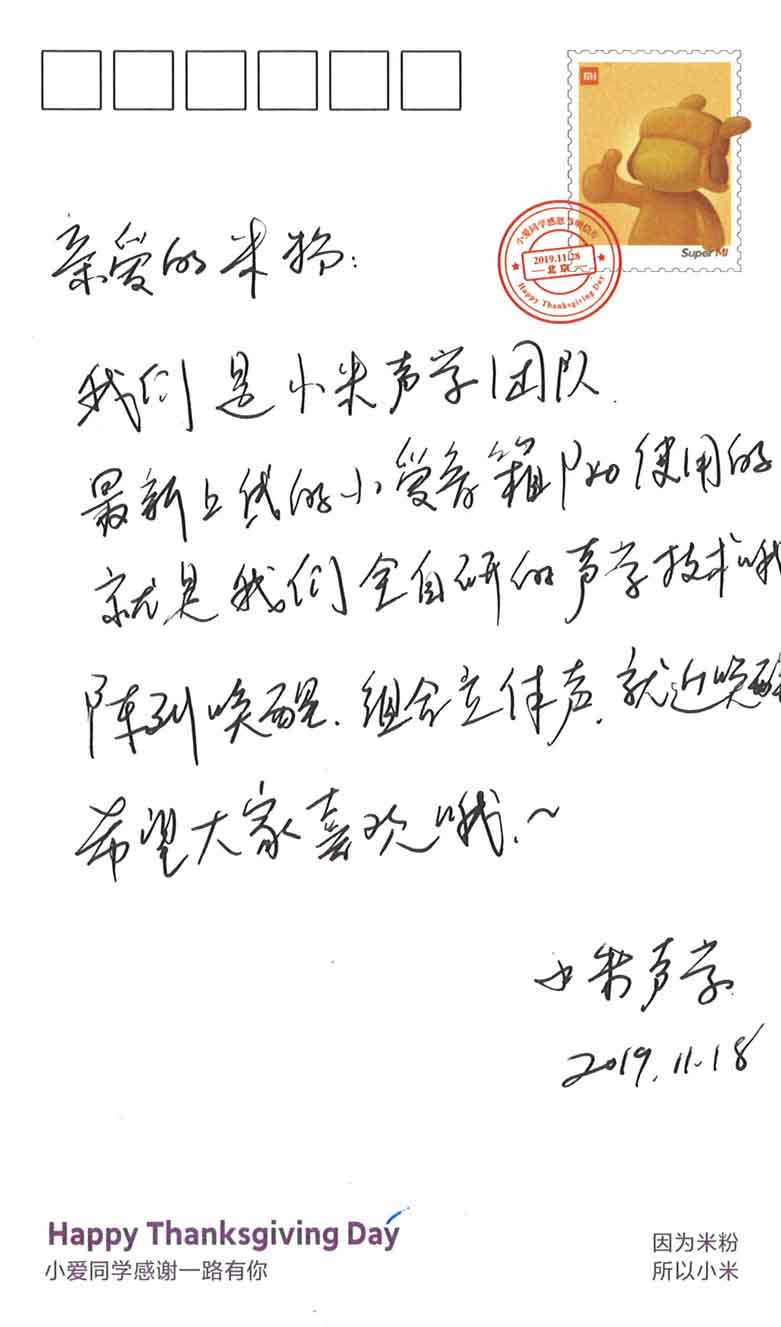 MI
Super MI
小爱同学感恩节明信片
2019.11.28
北京
Happy Thanksgiving Day
亲爱的米粉：
我们是小米声学团队.
最新上线的小爱音箱Pro使用的
就是我们全自研的声学技术哦
阵列唤醒、组合立体声、就近唤醒
希望大家喜欢哦.~
小米声学
2019.11.18
Happy Thanksgiving Day
小爱同学感谢一路有你
因为米粉
所以小米